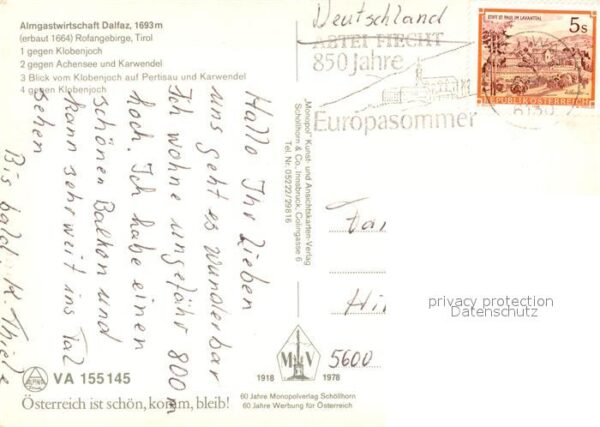 Almgastwirtschaft Dalfaz, 1693 m
(erbaut 1664) Rofangebirge, Tirol
1 gegen Klobenjoch
2 gegen Achensee und Karwendel
3 Blick vom Klobenjoch auf Pertisau und Karwendel
4 gegen Klobenjoch
Hallo Ihr Lieben
uns geht es wunderbar
Ich wohne ungefähr 800 m
hoch. Ich habe einen
schönen Balkon und
kann sehr weit ins Tal
sehen
Bis bald. K. Thiele
ALPINA
VA 155145
Österreich ist schön, komm, bleib!
Monopol" Kunst- und Ansichtskarten-Verlag
Schöllhorn & Co., Innsbruck, Colingasse 6
Tel. Nr. 05222/29816
M V
1918 1978
60 Jahre Monopolverlag Schöllhorn
60 Jahre Werbung für Österreich
Deutschland
ABTEI FIECHT
850 Jahre
Europasommer
STIFT ST. PAUL IM LAVANTTAL
5 S
REPUBLIK ÖSTERREICH
6130
Fa
Hi
5600
privacy protection
Datenschutz